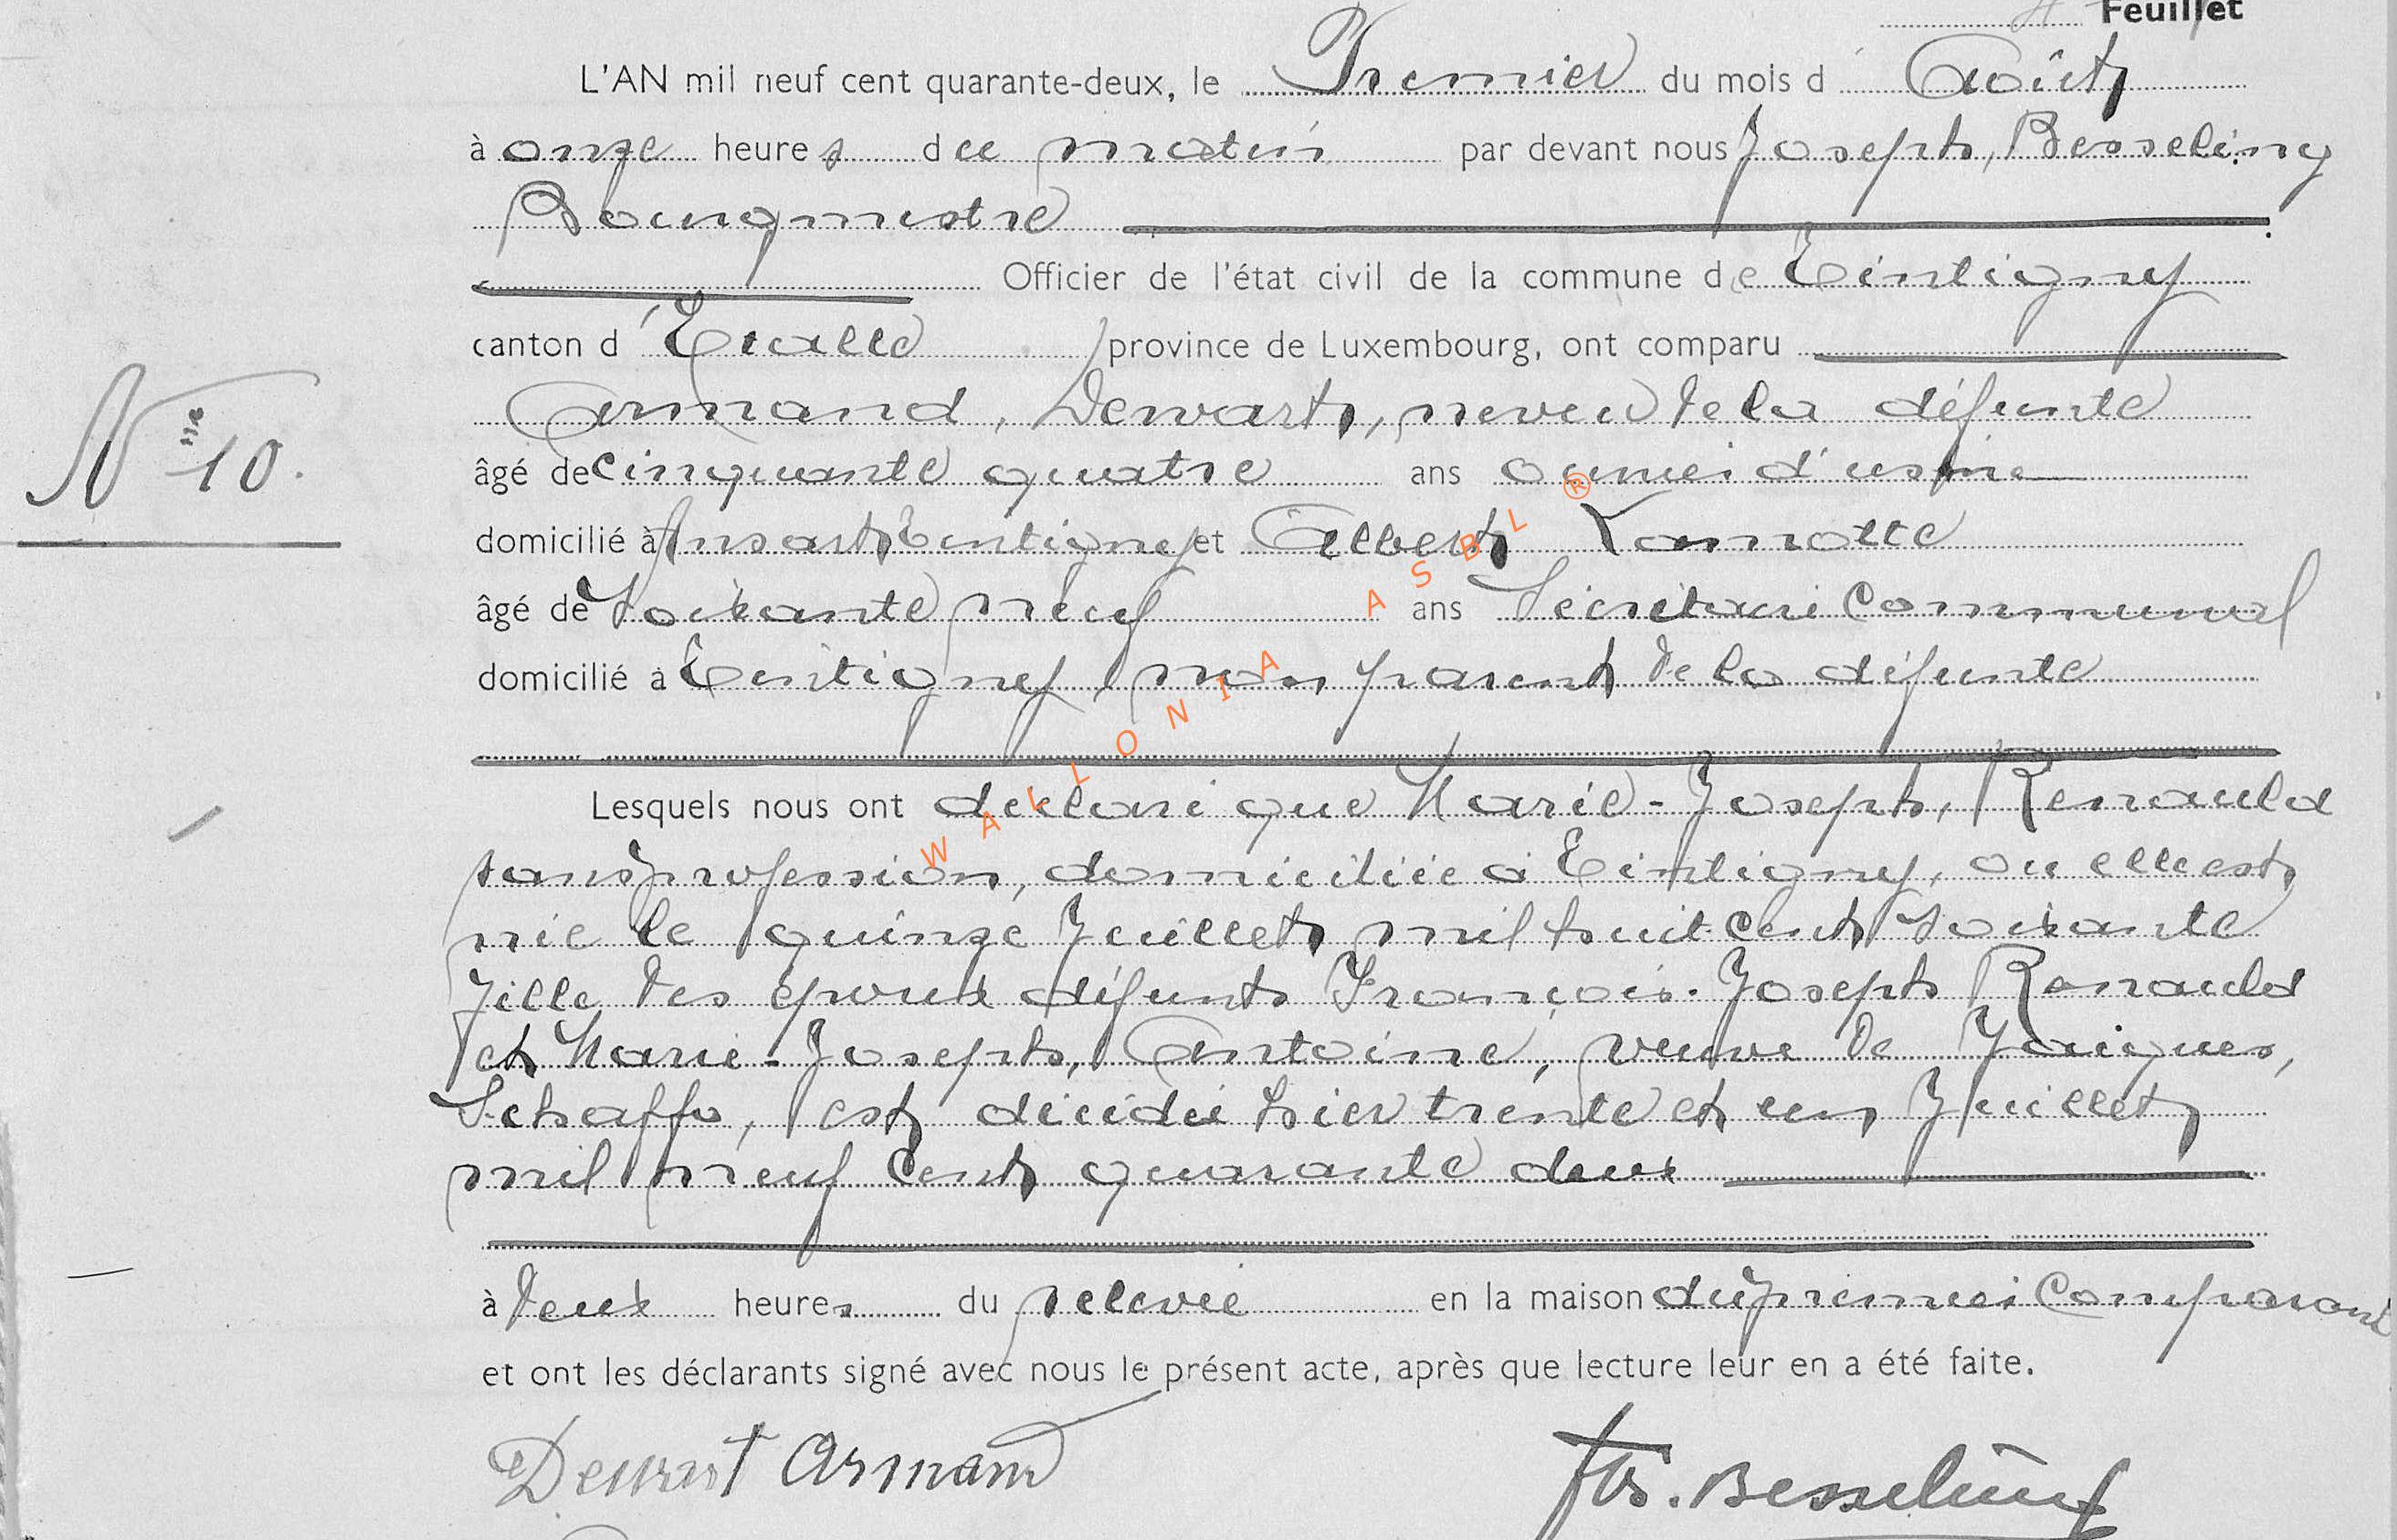 Feuillet
L'AN mil neuf cent quarante-deux, le Premier du mois d' Août
à onze heures du matin par devant nous Joseph, Besseling
Bourgmestre
Officier de l'état civil de la commune de Tintigny
canton d'Etalle province de Luxembourg, ont comparu
Armand, Dewart, neveu de la défunte
N° 10.
âgé de cinquante quatre ans ouvrier d'usine
domicilié à Ansart Tintigny et Albert Lamotte
âgé de Soixante neuf ans Secrétaire Communal
domicilié à Tintigny, non parent de la défunte
Lesquels nous ont déclaré que Marie-Joseph, Renauld
sans profession, domiciliée à Tintigny, ou elle est
née le quinze Juillet mil huit cent soixante
fille des époux défunts François-Joseph Renauld
et Marie-Joseph, Antoine, veuve de Jacques,
Schaffo, est décédée hier trente et un Juillet
mil neuf cent quarante deux
à deux heures du relevée en la maison du premier Comparant
et ont les déclarants signé avec nous le présent acte, après que lecture leur en a été faite.
Dewart Armand Jos. Besseling
WALLONIA ASBL ®